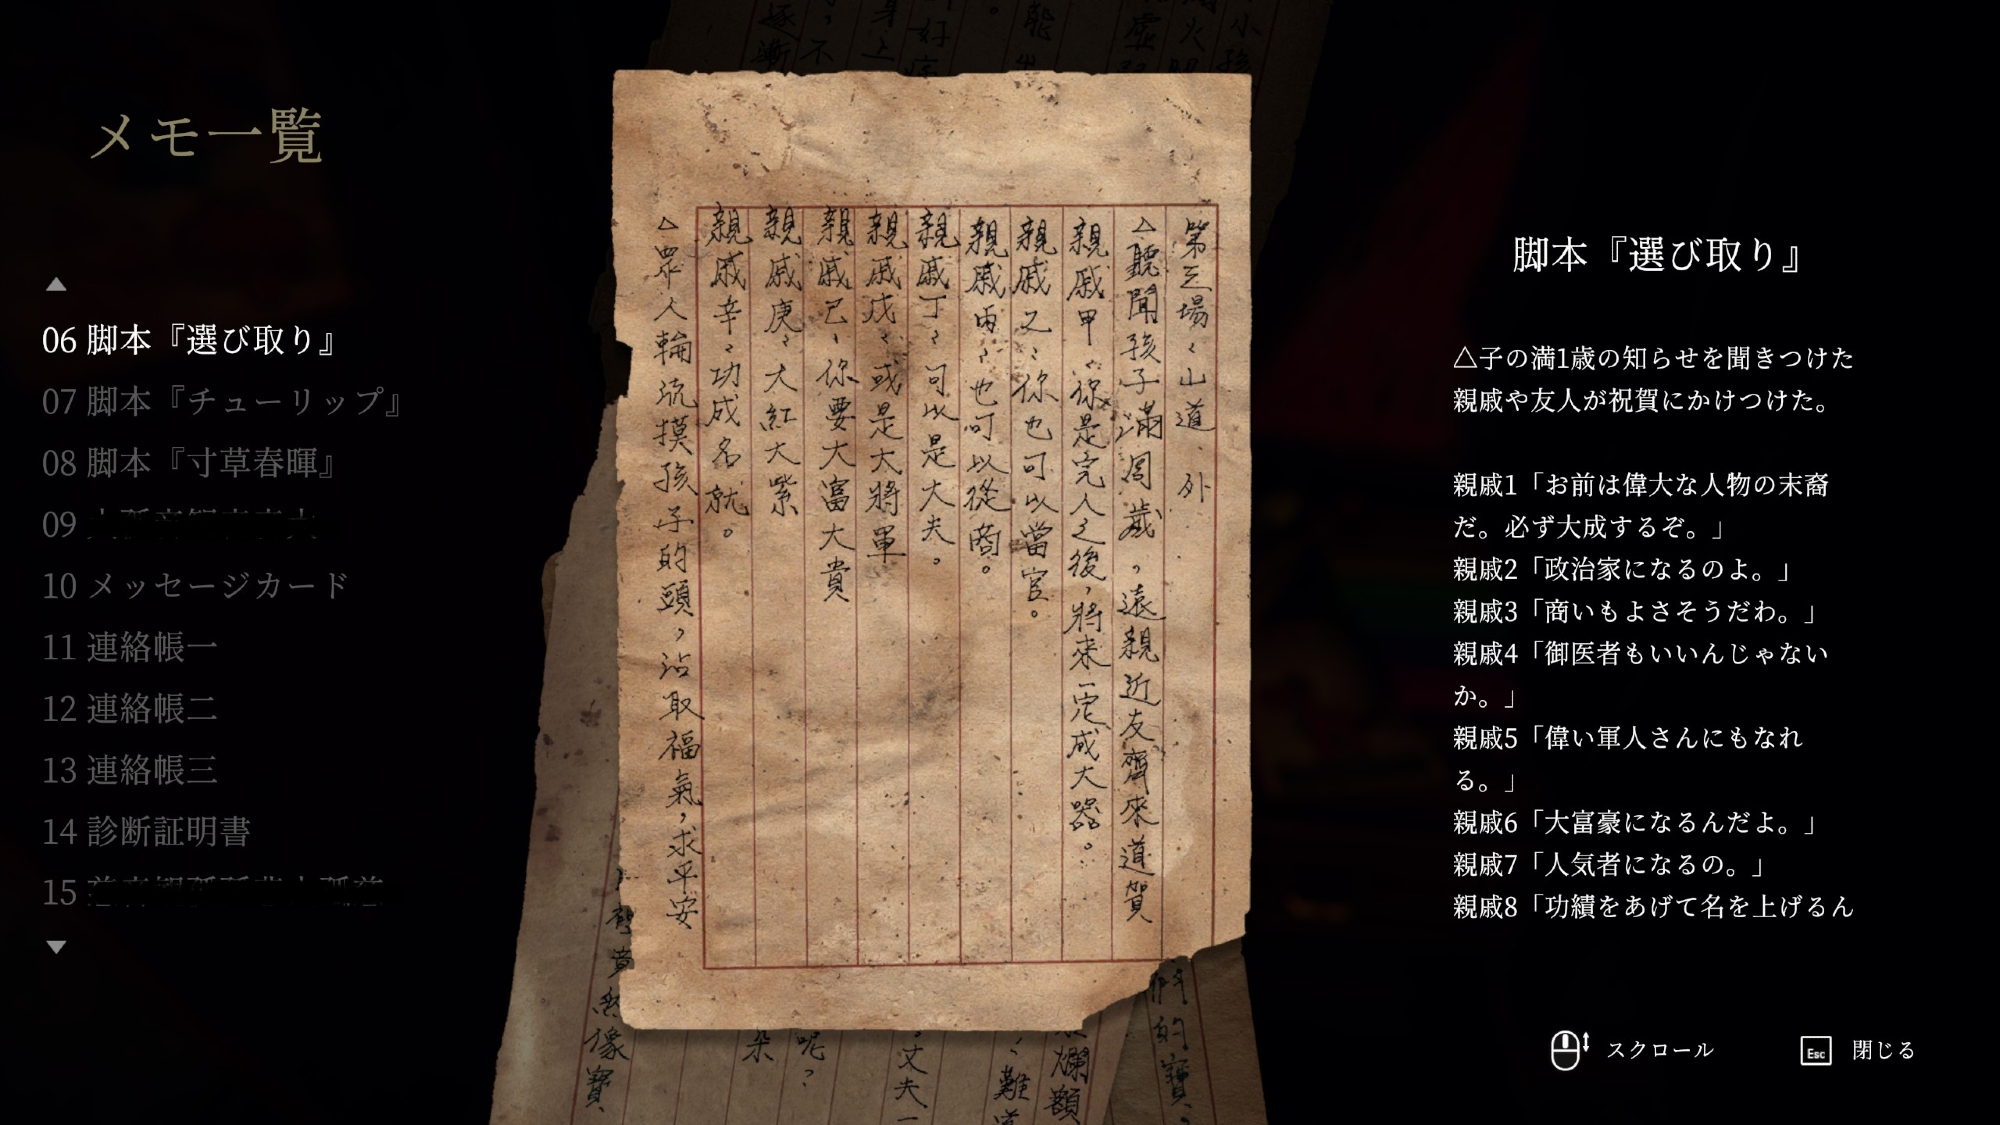 メモ一覧
06 脚本『選び取り』
07 脚本『チューリップ』
08 脚本『寸草春暉』
09
10 メッセージカード
11 連絡帳一
12 連絡帳二
13 連絡帳三
14 診断証明書
15
第三場、山道、外
△聽聞孩子滿周歲，遠親近友齊來道賀
親戚甲：你是完人之後，將來一定成大器。
親戚乙：你也可以當官。
親戚丙：也可以從商。
親戚丁：可以是大夫。
親戚戊：或是大將軍
親戚己：你要大富大貴
親戚庚：大紅大紫
親戚辛：功成名就。
△眾人輪流摸孩子的頭，沾取福氣，求平安
脚本『選び取り』
△子の満1歳の知らせを聞きつけた
親戚や友人が祝賀にかけつけた。
親戚1「お前は偉大な人物の末裔
だ。必ず大成するぞ。」
親戚2「政治家になるのよ。」
親戚3「商いもよさそうだわ。」
親戚4「御医者もいいんじゃない
か。」
親戚5「偉い軍人さんにもなれ
る。」
親戚6「大富豪になるんだよ。」
親戚7「人気者になるの。」
親戚8「功績をあげて名を上げるん
スクロール
Esc 閉じる